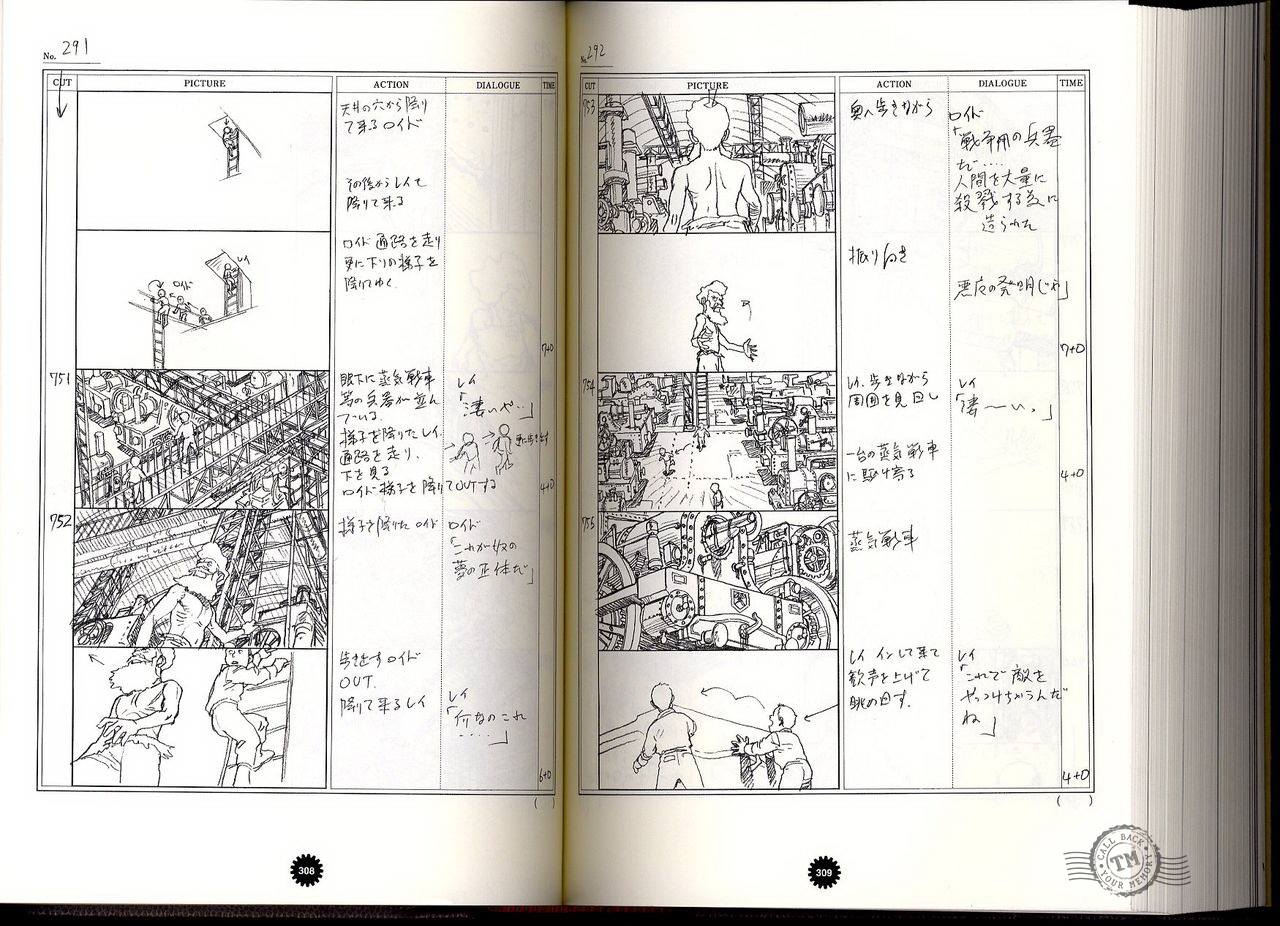 No. 291
CUT
PICTURE
ACTION
DIALOGUE
TIME
天井の穴から降り
て来るロイド
その後からレイも
降りて来る
ロイド通路を走り
更に下りの梯子を
降りてゆく
レイ
ロイド
7+0
751
眼下に蒸気戦車
等の兵器が並ん
でいる。
梯子を降りたレイ、
通路を走り、
下を見る
ロイド梯子を降りてOUTする
レイ
「凄いや…」
4+0
752
梯子を降りた ロイド
ロイド
「これが奴の
夢の正体だ」
歩き出すロイド
OUT.
降りて来るレイ
レイ
「何なのこれ
……」
6+0
( )
308
No. 292
CUT
PICTURE
ACTION
DIALOGUE
TIME
753
奥へ歩きながら
ロイド
「戦争用の兵器
だ……
人間を大量に
殺戮する為に
造られた
振り向き
悪魔の発明じゃ」
7+0
754
レイ、歩きながら
周囲を見回し
レイ
「凄〜い。」
一台の蒸気戦車
に駆け寄る
4+0
755
蒸気戦車
レイ インして来て
歓声を上げて
眺め回す.
レイ
「これで敵を
やっつけちゃうんだ
ね」
4+0
( )
309
CALL BACK
TM
YOUR MEMORY